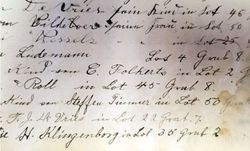 De Vries sein Kind in Lot 46
Wildeboer seine Frau in Lot 50
Wessels in Lot
Ludemann Lot 4 Grab 8.
Kind von E. Folkerts in Lot 2
Poll in Lot 45 Grab 8.
Kind von Steffen Timmer in Lot 50 Grab
De Vries in Lot 22 Grab 7.
H. Klingenborg in Lot 35 Grab 2